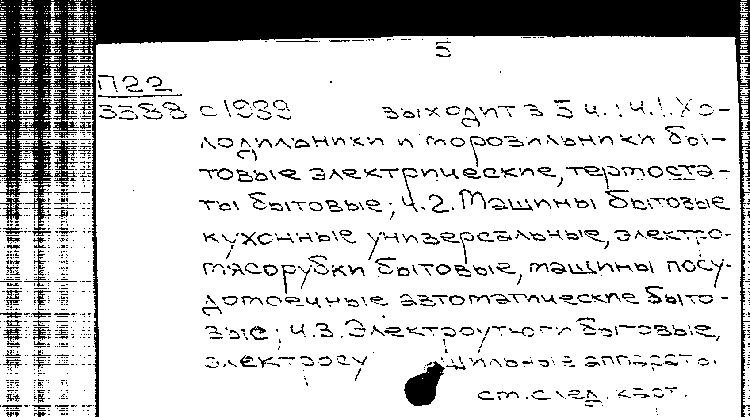 5
П22
3388 с 1989 выходит в 5 ч.: Ч.1. Хо-
лодильники и морозильники бы-
товые электрические, термоста-
ты бытовые; Ч.2. Машины бытовые
кухонные универсальные, электро-
мясорубки бытовые, машины посу-
домоечные автоматические быто-
вые; Ч.3. Электроутюги бытовые,
электросу шильные аппараты
см. след. карт.